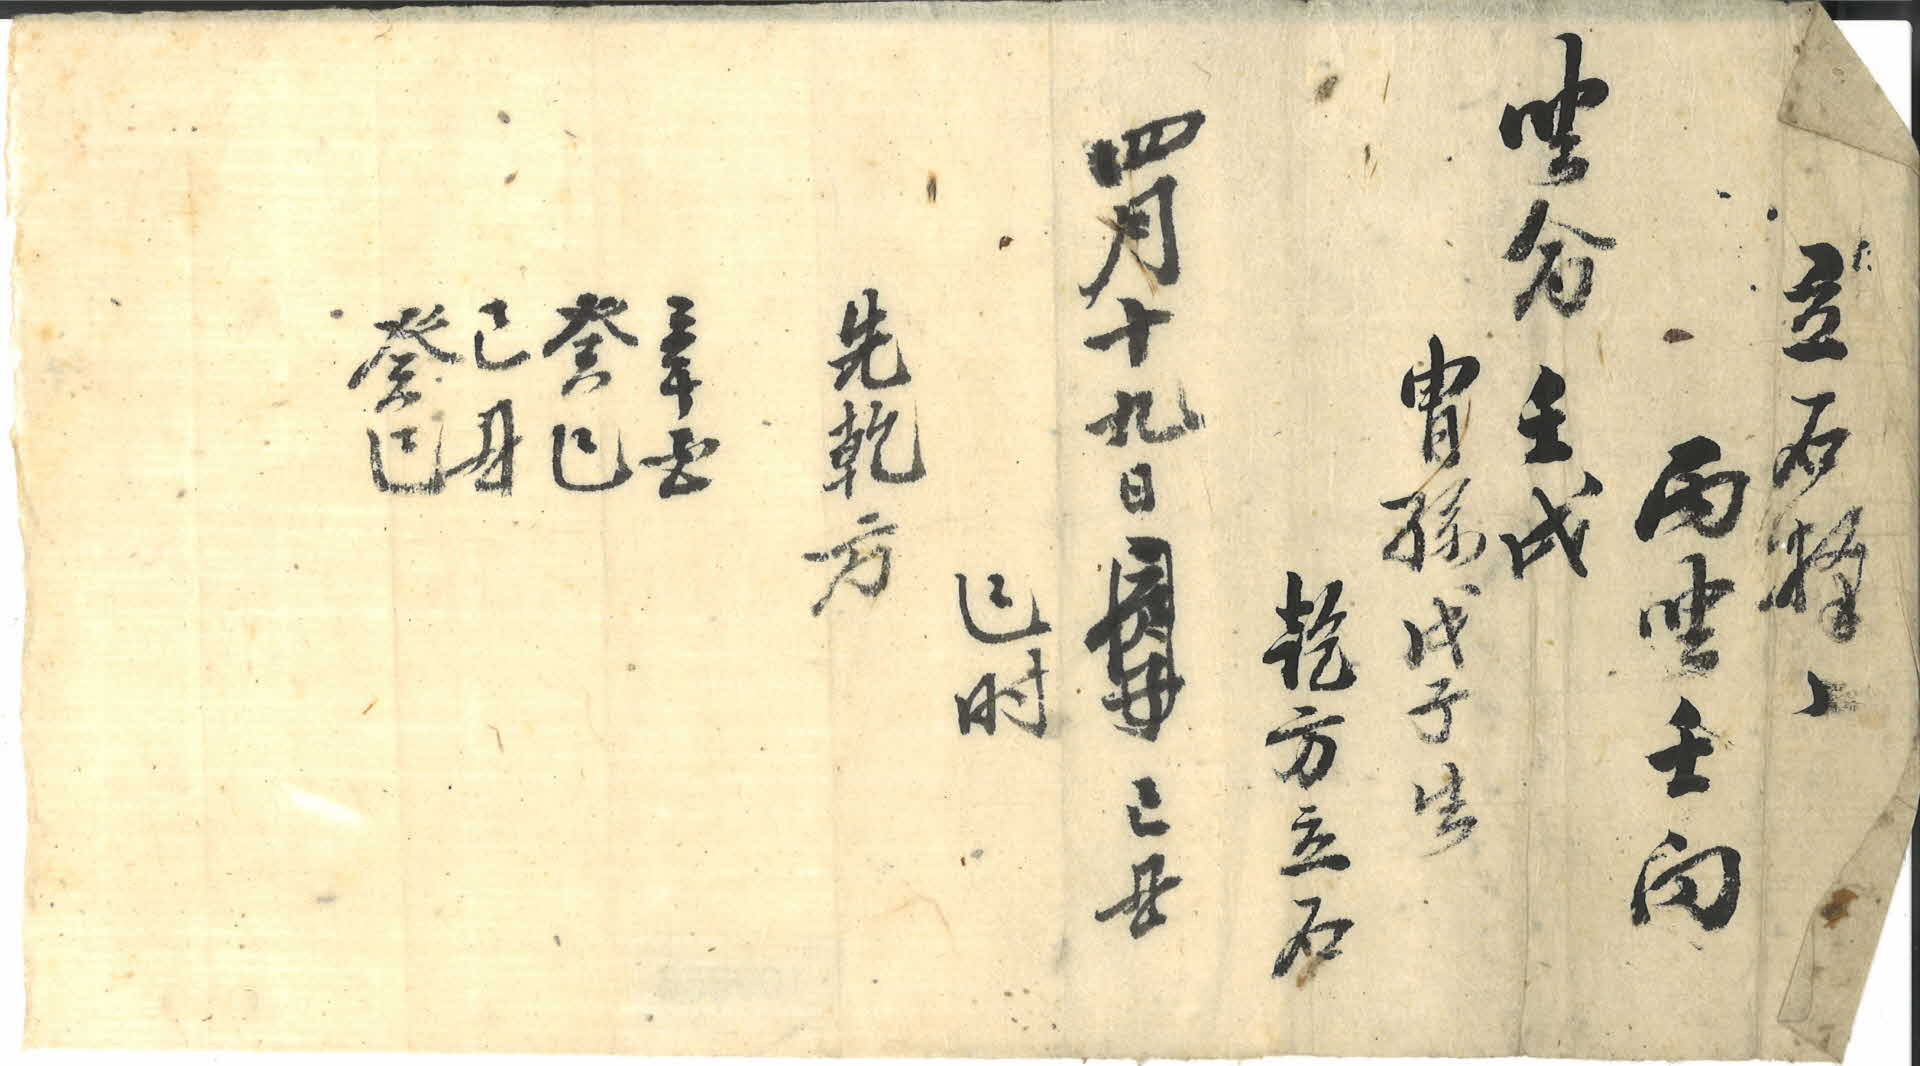 立石擇
丙坐壬向
坐命壬戌
胄孫戊子生
乾方立石
四月十九日 己丑
巳时
先乾方
辛酉
癸巳
己丑
癸巳